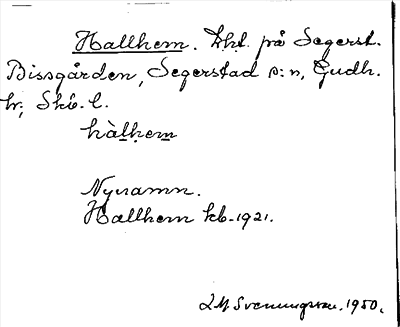 Hallhem. Lht. på Segerst.
Bissgården, Segerstad s:n, Gudh.
hr, Skb. l.
hàlhem
Nynamn.
Hallhem kb. 1921.
Sveningsson. 1950.